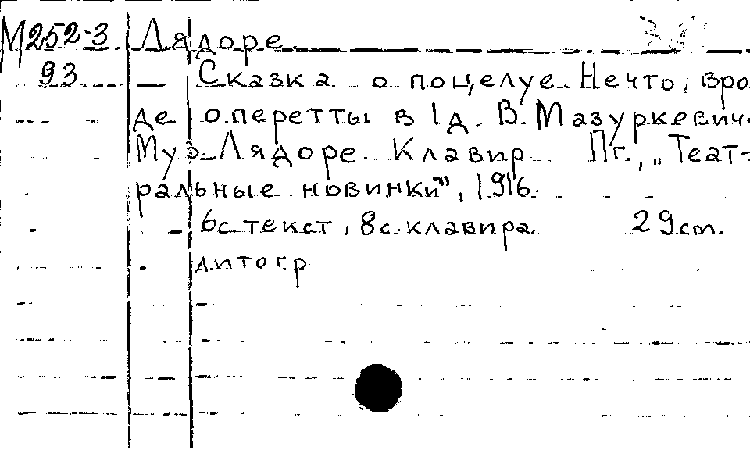 М252-3 Лядоре
93 Сказка о поцелуе. Нечто, вро
де оперетты в 1 д. В. Мазуркевич.
Муз. Лядоре. Клавир. Пг., „Теат-
ральные новинки", 1916.
6 с. текст, 8 с. клавира. 29 cm.
литогр